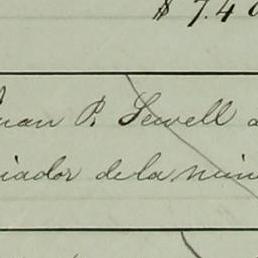 $ 7.4
Juan P. Sewell
iador de la mina